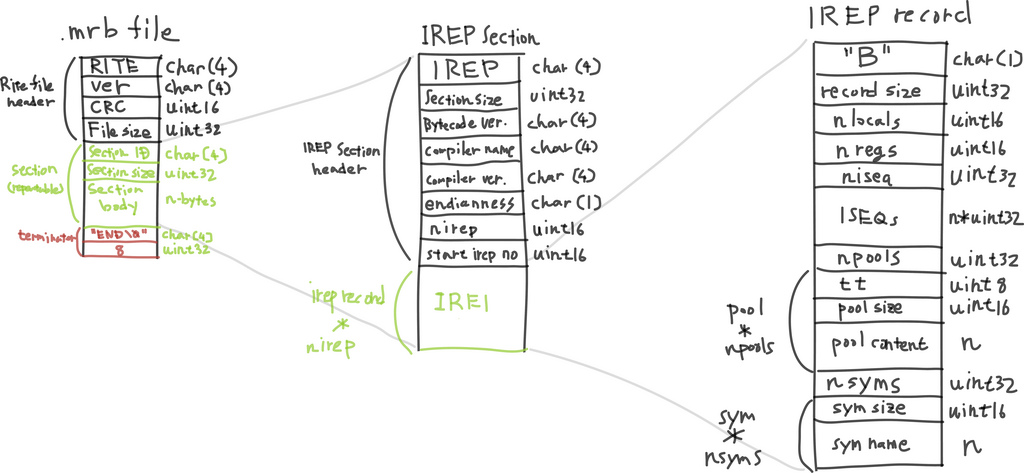 .mrb file
Rite file
header
RITE char(4)
ver char(4)
CRC uint16
File size uint32
section
(repeatable)
Section ID char(4)
Section size uint32
Section
body n-bytes
terminator
"END\0" char(4)
8 uint32
IREP Section
IREP Section
header
IREP char(4)
Section size uint32
Bytecode ver. char(4)
Compiler name char(4)
Compiler ver. char(4)
endianness char(1)
nirep uint16
start irep no uint16
irep record
*
nirep
IRE1
IREP record
"B" char(1)
record size uint32
nlocals uint16
nregs uint16
niseq uint32
ISEQs n*uint32
npools uint32
pool
*
npools
tt uint8
pool size uint16
pool content n
nsyms uint32
sym
*
nsyms
sym size uint16
sym name n